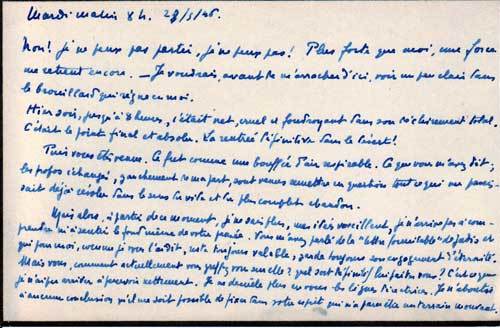 Mardi matin 8 h. 28/5/46.
Non! je ne peux pas partir, je ne peux pas! Plus forte que moi, une force
me retient encore. — Je voudrais, avant de m'arracher d'ici, voir un peu clair dans
le brouillard qui règne en moi.
Hier soir, jusqu'à 8 heures, c'était net, cruel et foudroyant dans son éclairement total.
C'était le point final et absolu. La rentrée définitive dans le désert!
Puis vous êtes venu. Ce fut comme une bouffée d'air respirable. Ce que vous m'avez dit;
les propos échangés, gauchement de ma part, sont venus remettre en question tout ce qui me parais-
sait déjà résolu dans le sens la vite et du plus complet abandon.
Mais alors, à partir de ce moment, je ne sais plus, mes idées vacillent, je n'arrive pas à com-
prendre ni à sentir le fond même de votre pensée. Vous m'avez parlé de la "lettre formidable" de jadis et
qui pour moi, comme je vous l'ai dit, reste toujours valable, garde toujours son engagement d'éternité.
Mais vous, comment actuellement vous sur elle? quel sort définitif lui faites-vous? C'est ce que
je n'ai pu arriver à percevoir nettement. Je ne décèle plus en vous les lignes directrices. Je n'aboutis
à aucune conclusion qu'il me soit possible de dans votre esprit qui m'a paru être un terrain mouvant